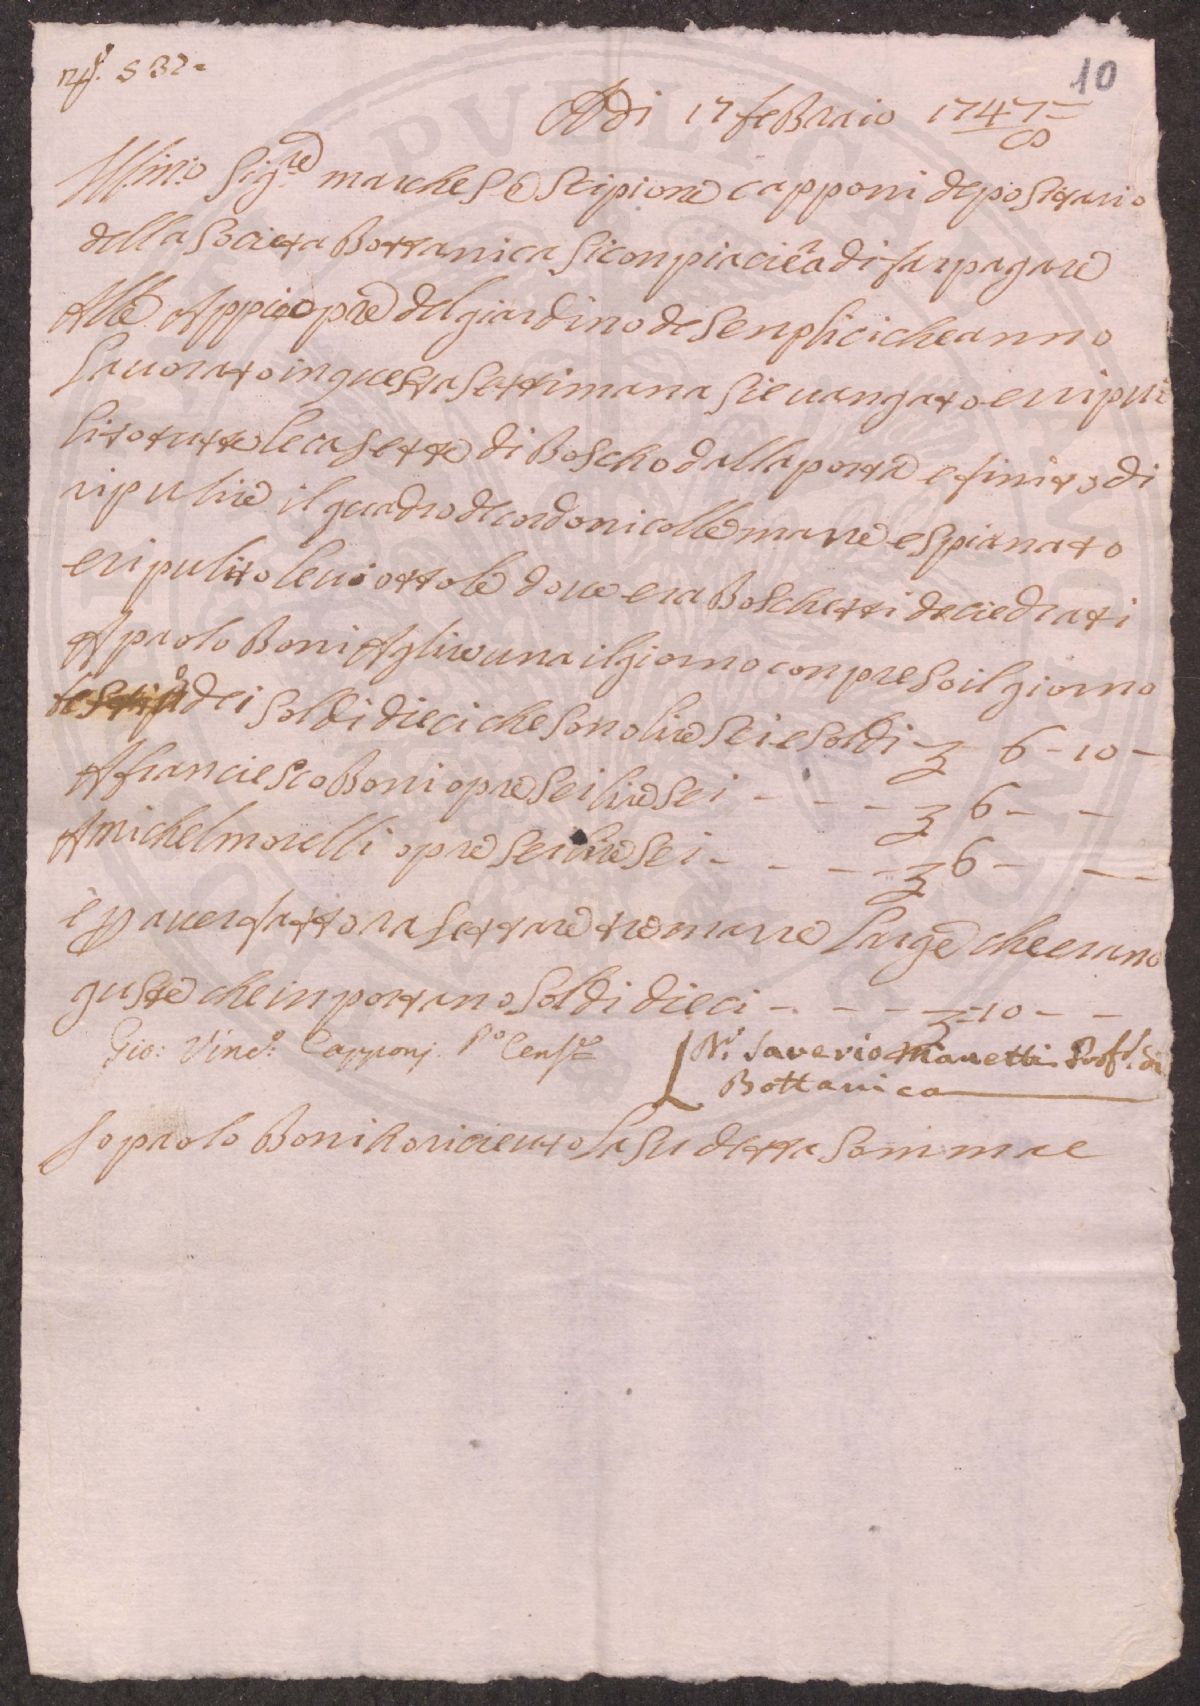 10
Adi 17 febraio 1747
Ill.mo Sig.re marchese Scipione capponi depositario
della Societa Bottanica si conpiacierà di far pagare
Alle Appie opre del giardino de Senplici che anno
lavorato in questa settimana sie vangato e ripu
lito tutte le casette di Boscho dalla porta e finito di
ripulire il quadro de cordoni colle marre e spianato
e ripulito le viottole dove era Boschetti de ciedrati
A paolo Boni A lire una il giorno conpreso il giorno
dei soldi dieci che sono lire sei e soldi 6-10-
A franciesco Boni opre sei lire sei - - - 6 - -
A michel morelli opre sei lire sei - - - 6 - -
e p aver fatto rasettare tre marre large che erano
guste che inportano soldi dieci - - - -10 - -
Gio: Vinc.o Capponi P.o Cens.re
Saverio Manetti Prof. di
Bottanica
Io paolo Boni ho riceuto la su detta Somma e